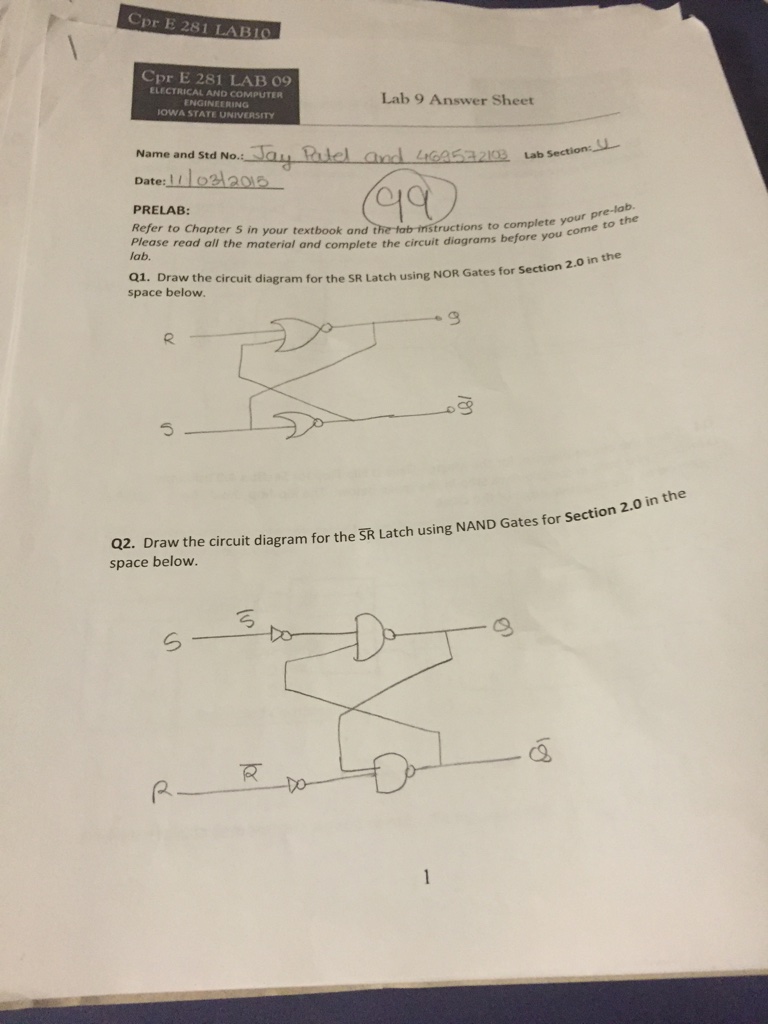 Cpr E 281 LAB10
Cpr E 281 LAB 09
ELECTRICAL AND COMPUTER
ENGINEERING
IOWA STATE UNIVERSITY
Lab 9 Answer Sheet
Name and Std No.: Jay Patel and Lab Section:
Date: 11/03/2015
99
PRELAB:
Refer to Chapter 5 in your textbook and the lab instructions to complete your pre-lab.
Please read all the material and complete the circuit diagrams before you come to the
lab.
Q1. Draw the circuit diagram for the SR Latch using NOR Gates for Section 2.0 in the
space below.
R
Q
S
Q̅
Q2. Draw the circuit diagram for the S̅R̅ Latch using NAND Gates for Section 2.0 in the
space below.
S S̅ Q
R R̅ Q̅
1